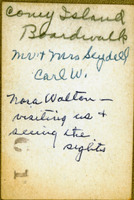 Coney Island
Boardwalk
Mr & Mrs Seydell
Carl W.
Nora Walton —
visiting us &
seeing the
sights